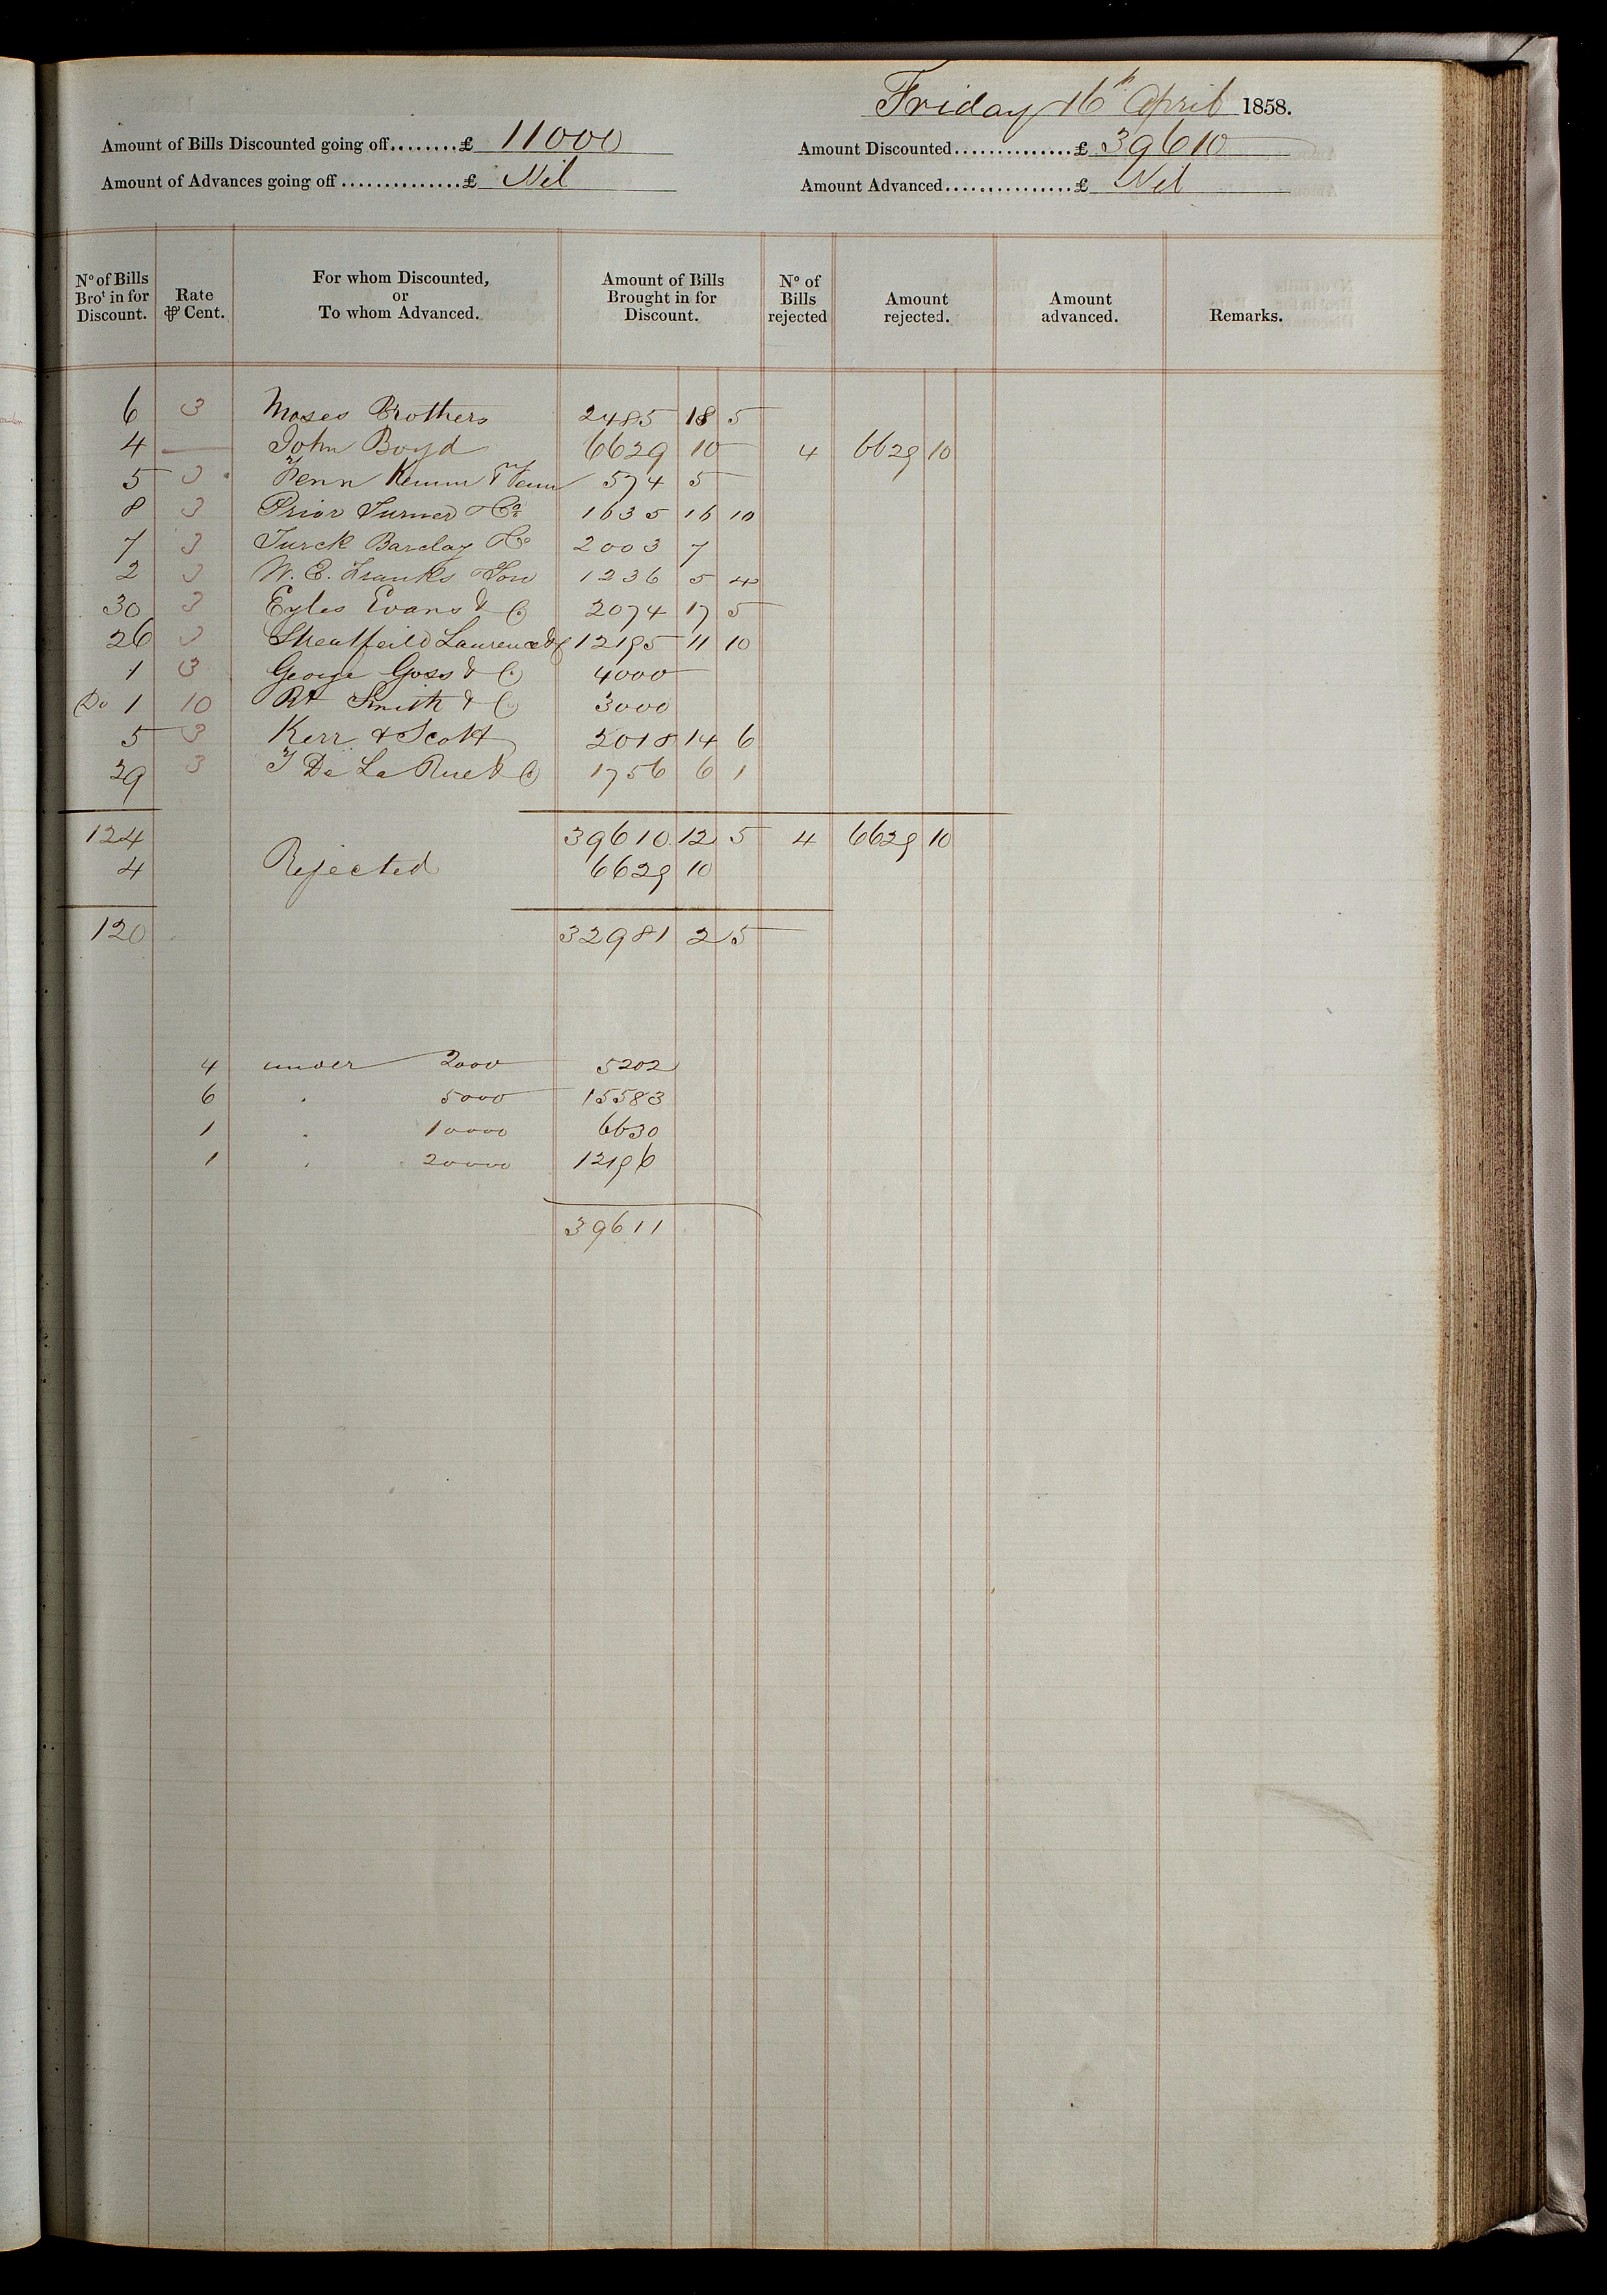 Friday 16th April 1858.
Amount of Bills Discounted going off........£ 11000
Amount Discounted...............£ 39610
Amount of Advances going off..............£ Nil
Amount Advanced................£ Nil
No of Bills Brot in for Discount. Rate ⅌ Cent. For whom Discounted, or To whom Advanced. Amount of Bills Brought in for Discount. No of Bills rejected Amount rejected. Amount advanced. Remarks.
6 3 Moses Brothers 2485 18 5
4 — John Boyd 6629 10 4 6629 10
5 3 Fenn Kemm & Fenn 574 5
8 3 Prior Turner & Co 1635 16 10
7 3 Turck Barclay & Co 2003 7
2 3 W. E. Franks & Son 1236 5 4
30 3 Eyles Evans & Co 2074 17 5
26 3 Streatfeild Laurence & Co 12195 11 10
1 3 George Goss & Co 4000
Do 1 10 Rt Smith & Co 3000
5 3 Kerr & Scott 2018 14 6
29 3 T De La Rue & Co 1756 6 1
124 39610 12 5 4 6629 10
4 Rejected 6629 10
120 32981 2 5
4 under 2000 5202
6 . 5000 15583
1 . 10000 6630
1 . 20000 12196
39611